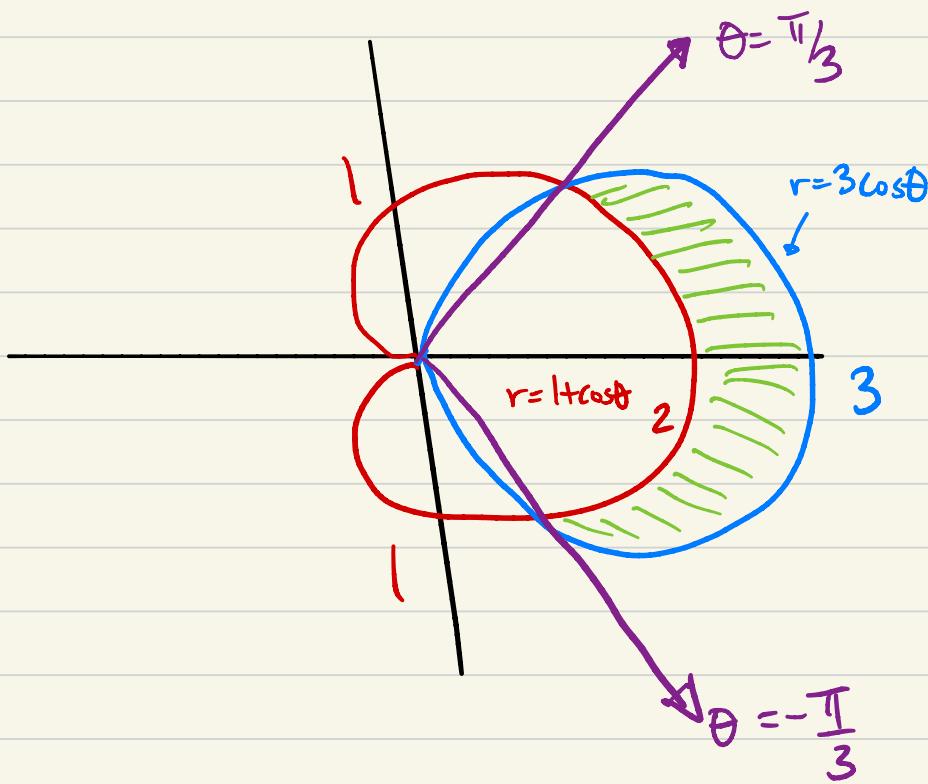 θ = π/3
r = 3cosθ
1
r = 1+cosθ
2
3
1
θ = -π/3